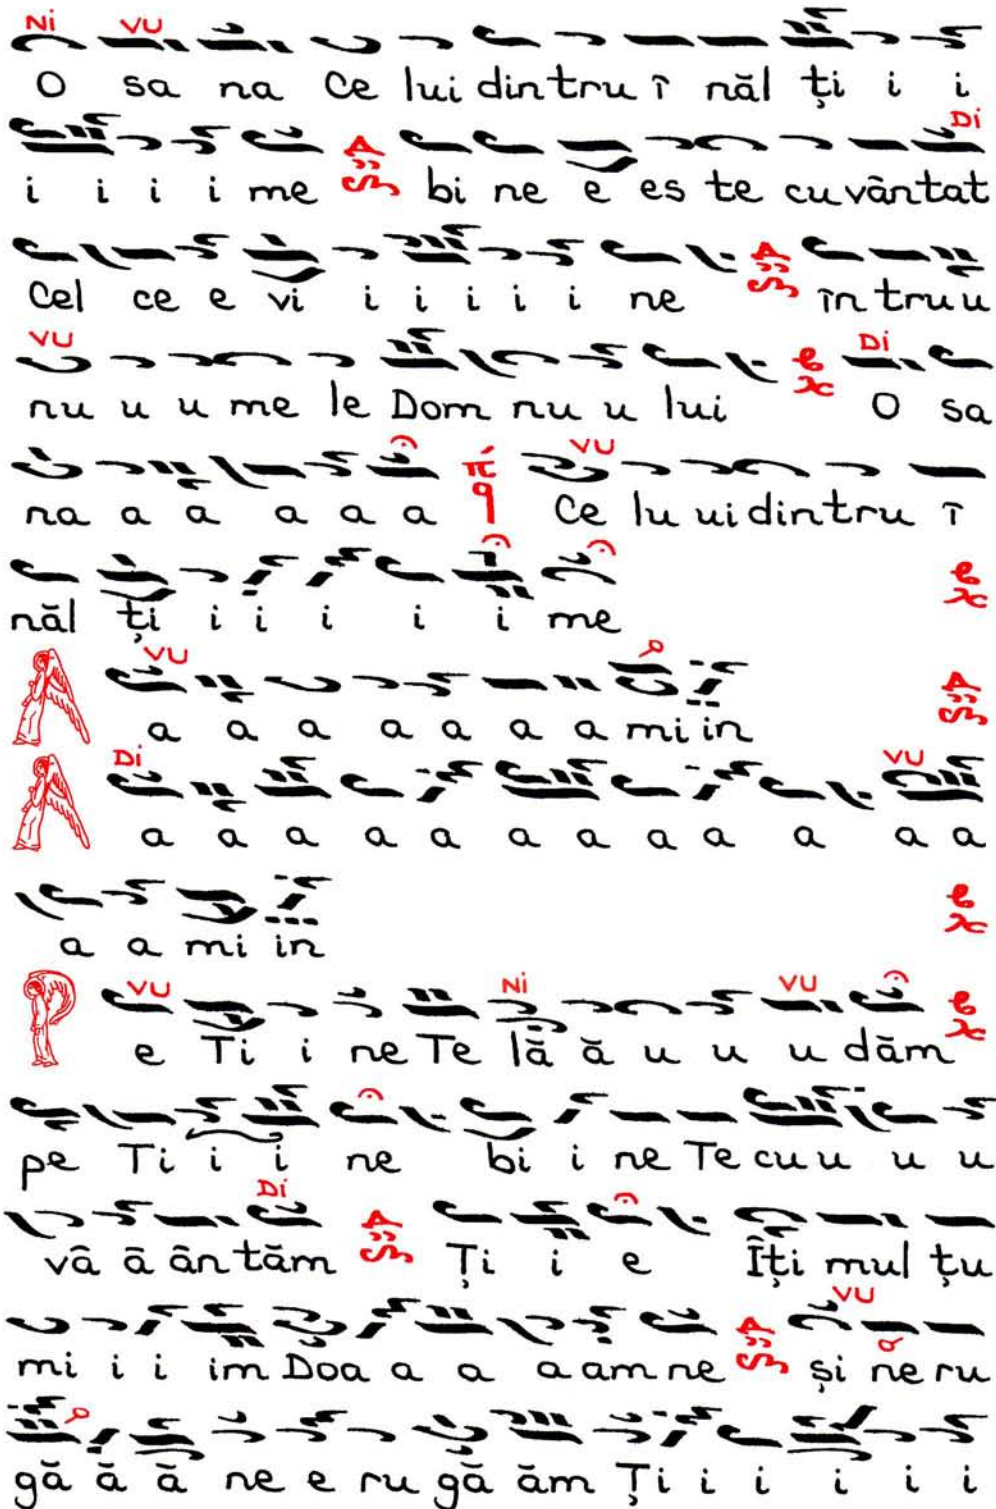 NI VU
O sa na Ce lui din tru î năl ţi i i
DI
i i i i me bi ne e es te cu vântat
Cel ce e vi i i i i i ne în tru u
VU DI
nu u u me le Dom nu u lui O sa
VU
na a a a a a Ce lu ui din tru î
năl ţi i i i i i me
VU
A a a a a a a a mi in
DI VU
A a a a a a a a a a a a
a a mi in
VU NI VU
P e Ti i ne Te lă ă u u u dăm
pe Ti i i ne bi i ne Te cu u u u
DI
vâ â ân tăm Ţi i e Îţi mul ţu
VU
mi i i im Doa a a a am ne şi ne ru
gă ă ă ne e ru gă ăm Ţi i i i i i